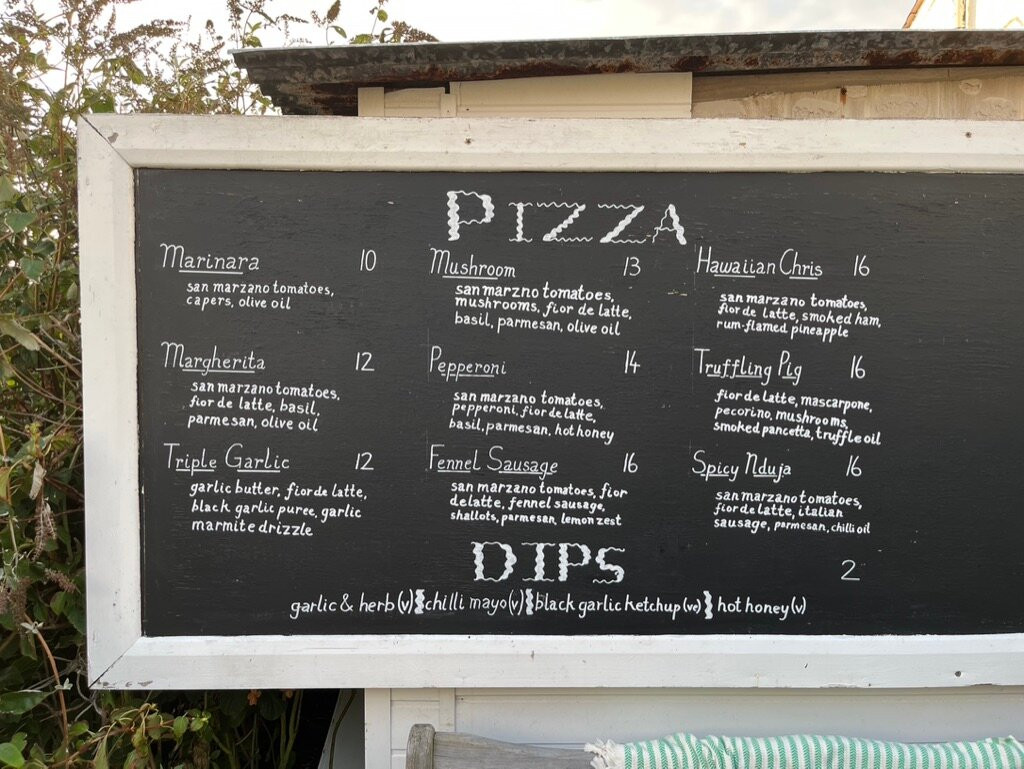 PIZZA
Marinara 10
san marzano tomatoes,
capers, olive oil
Margherita 12
san marzano tomatoes,
fior de latte, basil,
parmesan, olive oil
Triple Garlic 12
garlic butter, fior de latte,
black garlic puree, garlic
marmite drizzle
Mushroom 13
san marzno tomatoes,
mushrooms, fior de latte,
basil, parmesan, olive oil
Pepperoni 14
san marzano tomatoes,
pepperoni, fior de latte,
basil, parmesan, hot honey
Fennel Sausage 16
san marzano tomatoes, fior
de latte, fennel sausage,
shallots, parmesan, lemon zest
Hawaiian Chris 16
san marzano tomatoes,
fior de latte, smoked ham,
rum-flamed pineapple
Truffling Pig 16
fior de latte, mascarpone,
pecorino, mushrooms,
smoked pancetta, truffle oil
Spicy Nduja 16
san marzano tomatoes,
fior de latte, italian
sausage, parmesan, chilli oil
DIPS 2
garlic & herb (v) chilli mayo (v) black garlic ketchup (ve) hot honey (v)